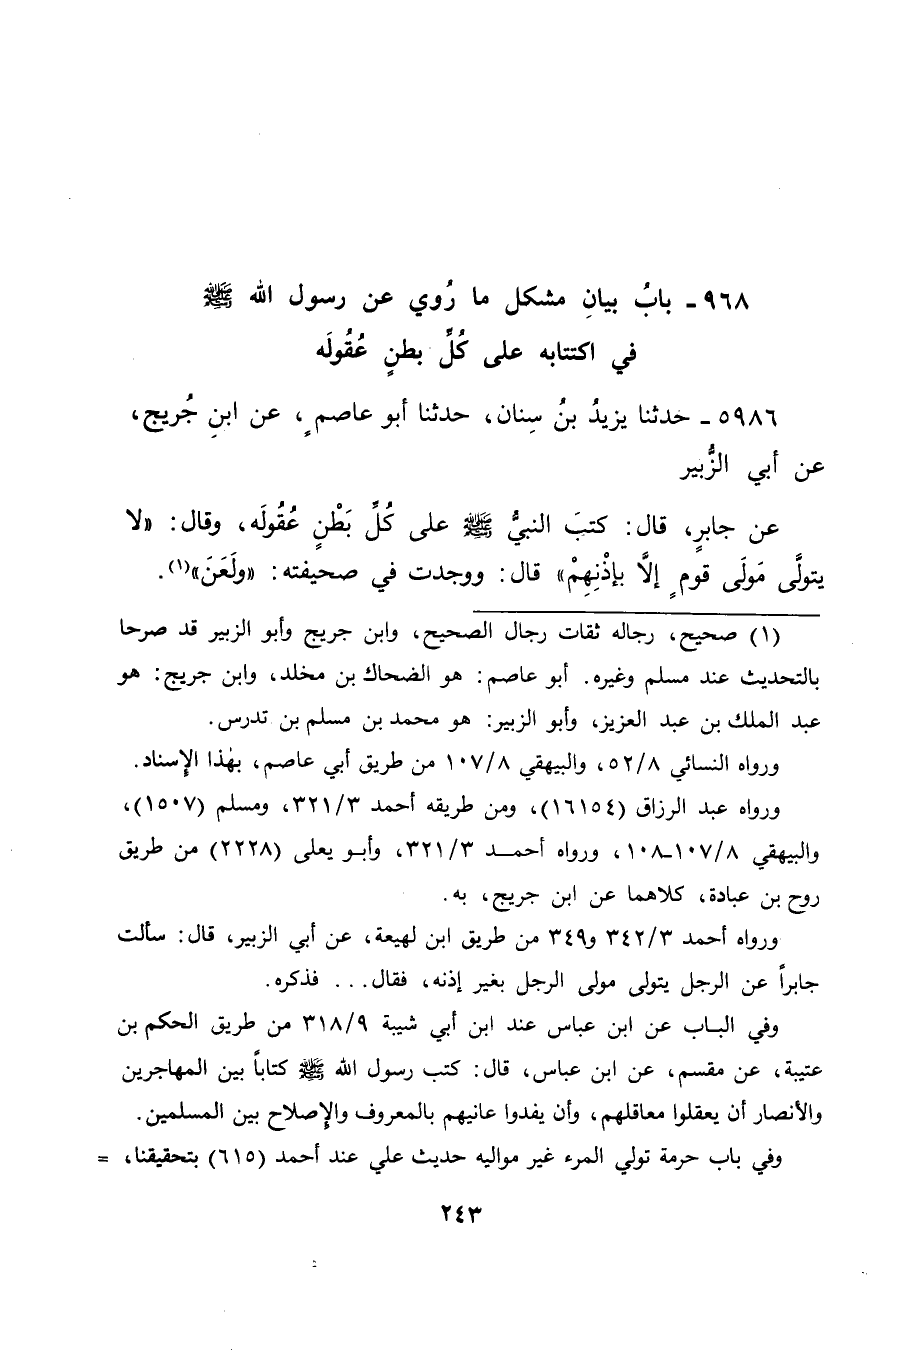 ٩٦٨ـ بابُ بيانِ مشكل ما رُوي عن رسول الله ﷺ
في اكتتابه على كُلِّ بطنٍ عُقُولَه
٥٩٨٦ـ حدثنا يزيدُ بنُ سِنان، حدثنا أبو عاصمٍ، عن ابنِ جُريج،
عن أبي الزُّبير
عن جابرٍ، قال: كتبَ النبيُّ ﷺ على كُلِّ بَطْنٍ عُقُولَه، وقال: «لا
يتولَّى مَولَى قومٍ إلَّا بإذْنِهِمْ» قال: ووجدت في صحيفته: «ولَعَنَ»(١).
(١) صحيح، رجاله ثقات رجال الصحيح، وابن جريج وأبو الزبير قد صرحا
بالتحديث عند مسلم وغيره. أبو عاصم: هو الضحاك بن مخلد، وابن جريج: هو
عبد الملك بن عبد العزيز، وأبو الزبير: هو محمد بن مسلم بن تدرس.
ورواه النسائي ٥٢/٨، والبيهقي ١٠٧/٨ من طريق أبي عاصم، بهٰذا الإسناد.
ورواه عبد الرزاق (١٦١٥٤)، ومن طريقه أحمد ٣٢١/٣، ومسلم (١٥٠٧)،
والبيهقي ١٠٧/٨ـ١٠٨، ورواه أحمـد ٣٢١/٣، وأبـو يعلى (٢٢٢٨) من طريق
روح بن عبادة، كلاهما عن ابن جريج، به.
ورواه أحمد ٣٤٢/٣ و٣٤٩ من طريق ابن لهيعة، عن أبي الزبير، قال: سألت
جابراً عن الرجل يتولى مولى الرجل بغير إذنه، فقال... فذكره.
وفي البـاب عن ابن عباس عند ابن أبي شيبة ٣١٨/٩ من طريق الحكم بن
عتيبة، عن مقسم، عن ابن عباس، قال: كتب رسول الله ﷺ كتاباً بين المهاجرين
والأنصار أن يعقلوا معاقلهم، وأن يفدوا عانيهم بالمعروف والإصلاح بين المسلمين.
وفي باب حرمة تولي المرء غير مواليه حديث علي عند أحمد (٦١٥) بتحقيقنا، =
٢٤٣